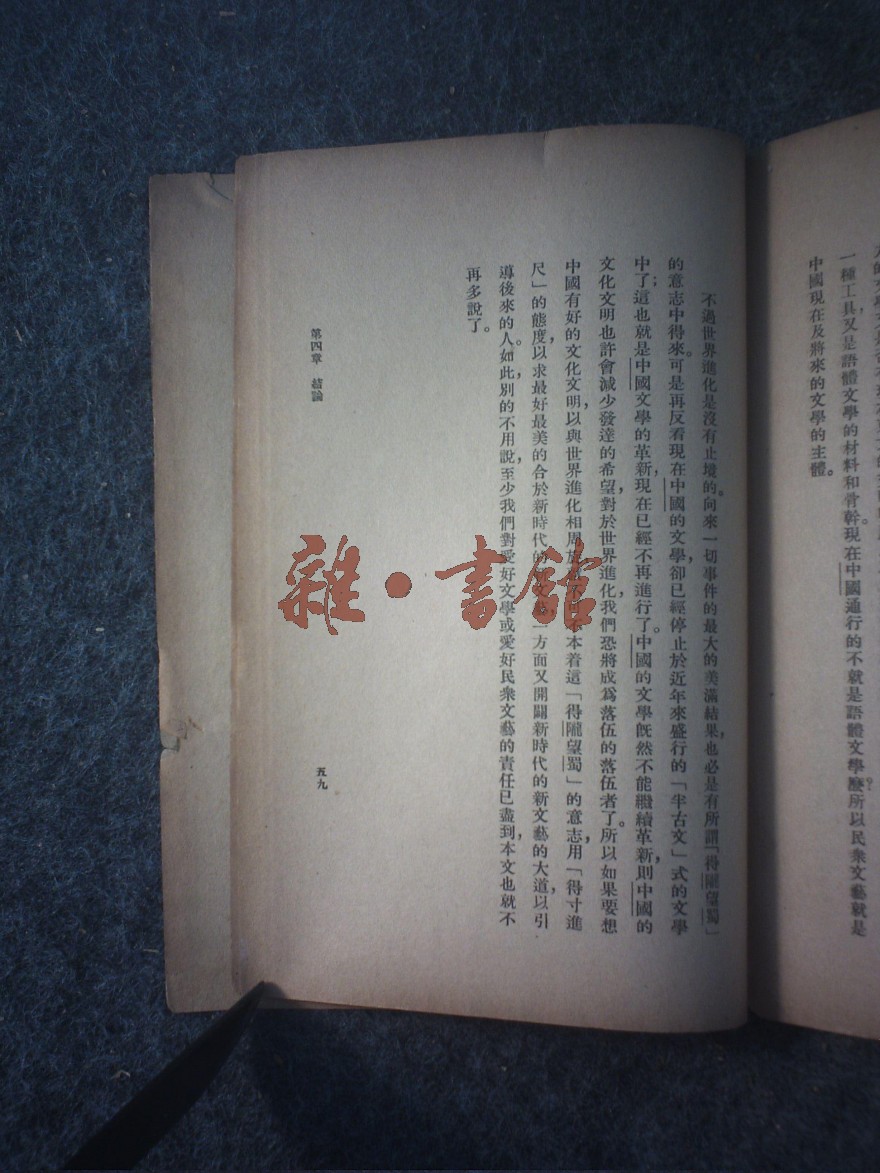 一種工具，又是語體文學的材料和骨幹。現在中國通行的不就是語體文學麼？所以民衆文藝就是
中國現在及將來的文學的主體。
不過世界進化是沒有止境的。向來一切事件的最大的美滿結果，也必是有所謂「得隴望蜀」
的意志中得來。可是再反看現在中國的文學，卻已經停止於近年來盛行的「半古文」式的文學
中了；這也就是中國文學的革新，現在已經不再進行了。中國的文學既然不能繼續革新，則中國的
文化文明也許會減少發達的希望，對於世界進化，我們恐將成爲落伍的落伍者了。所以如果要想
中國有好的文化文明，以與世界進化相周旋，本着這「得隴望蜀」的意志，用「得寸進
尺」的態度，以求最好最美的合於新時代的一方面又開闢新時代的新文藝的大道，以引
導後來的人。如此，別的不用說，至少我們對愛好文學或愛好民衆文藝的責任已盡到，本文也就不
再多說了。
第四章 結論
五九
雜·書館